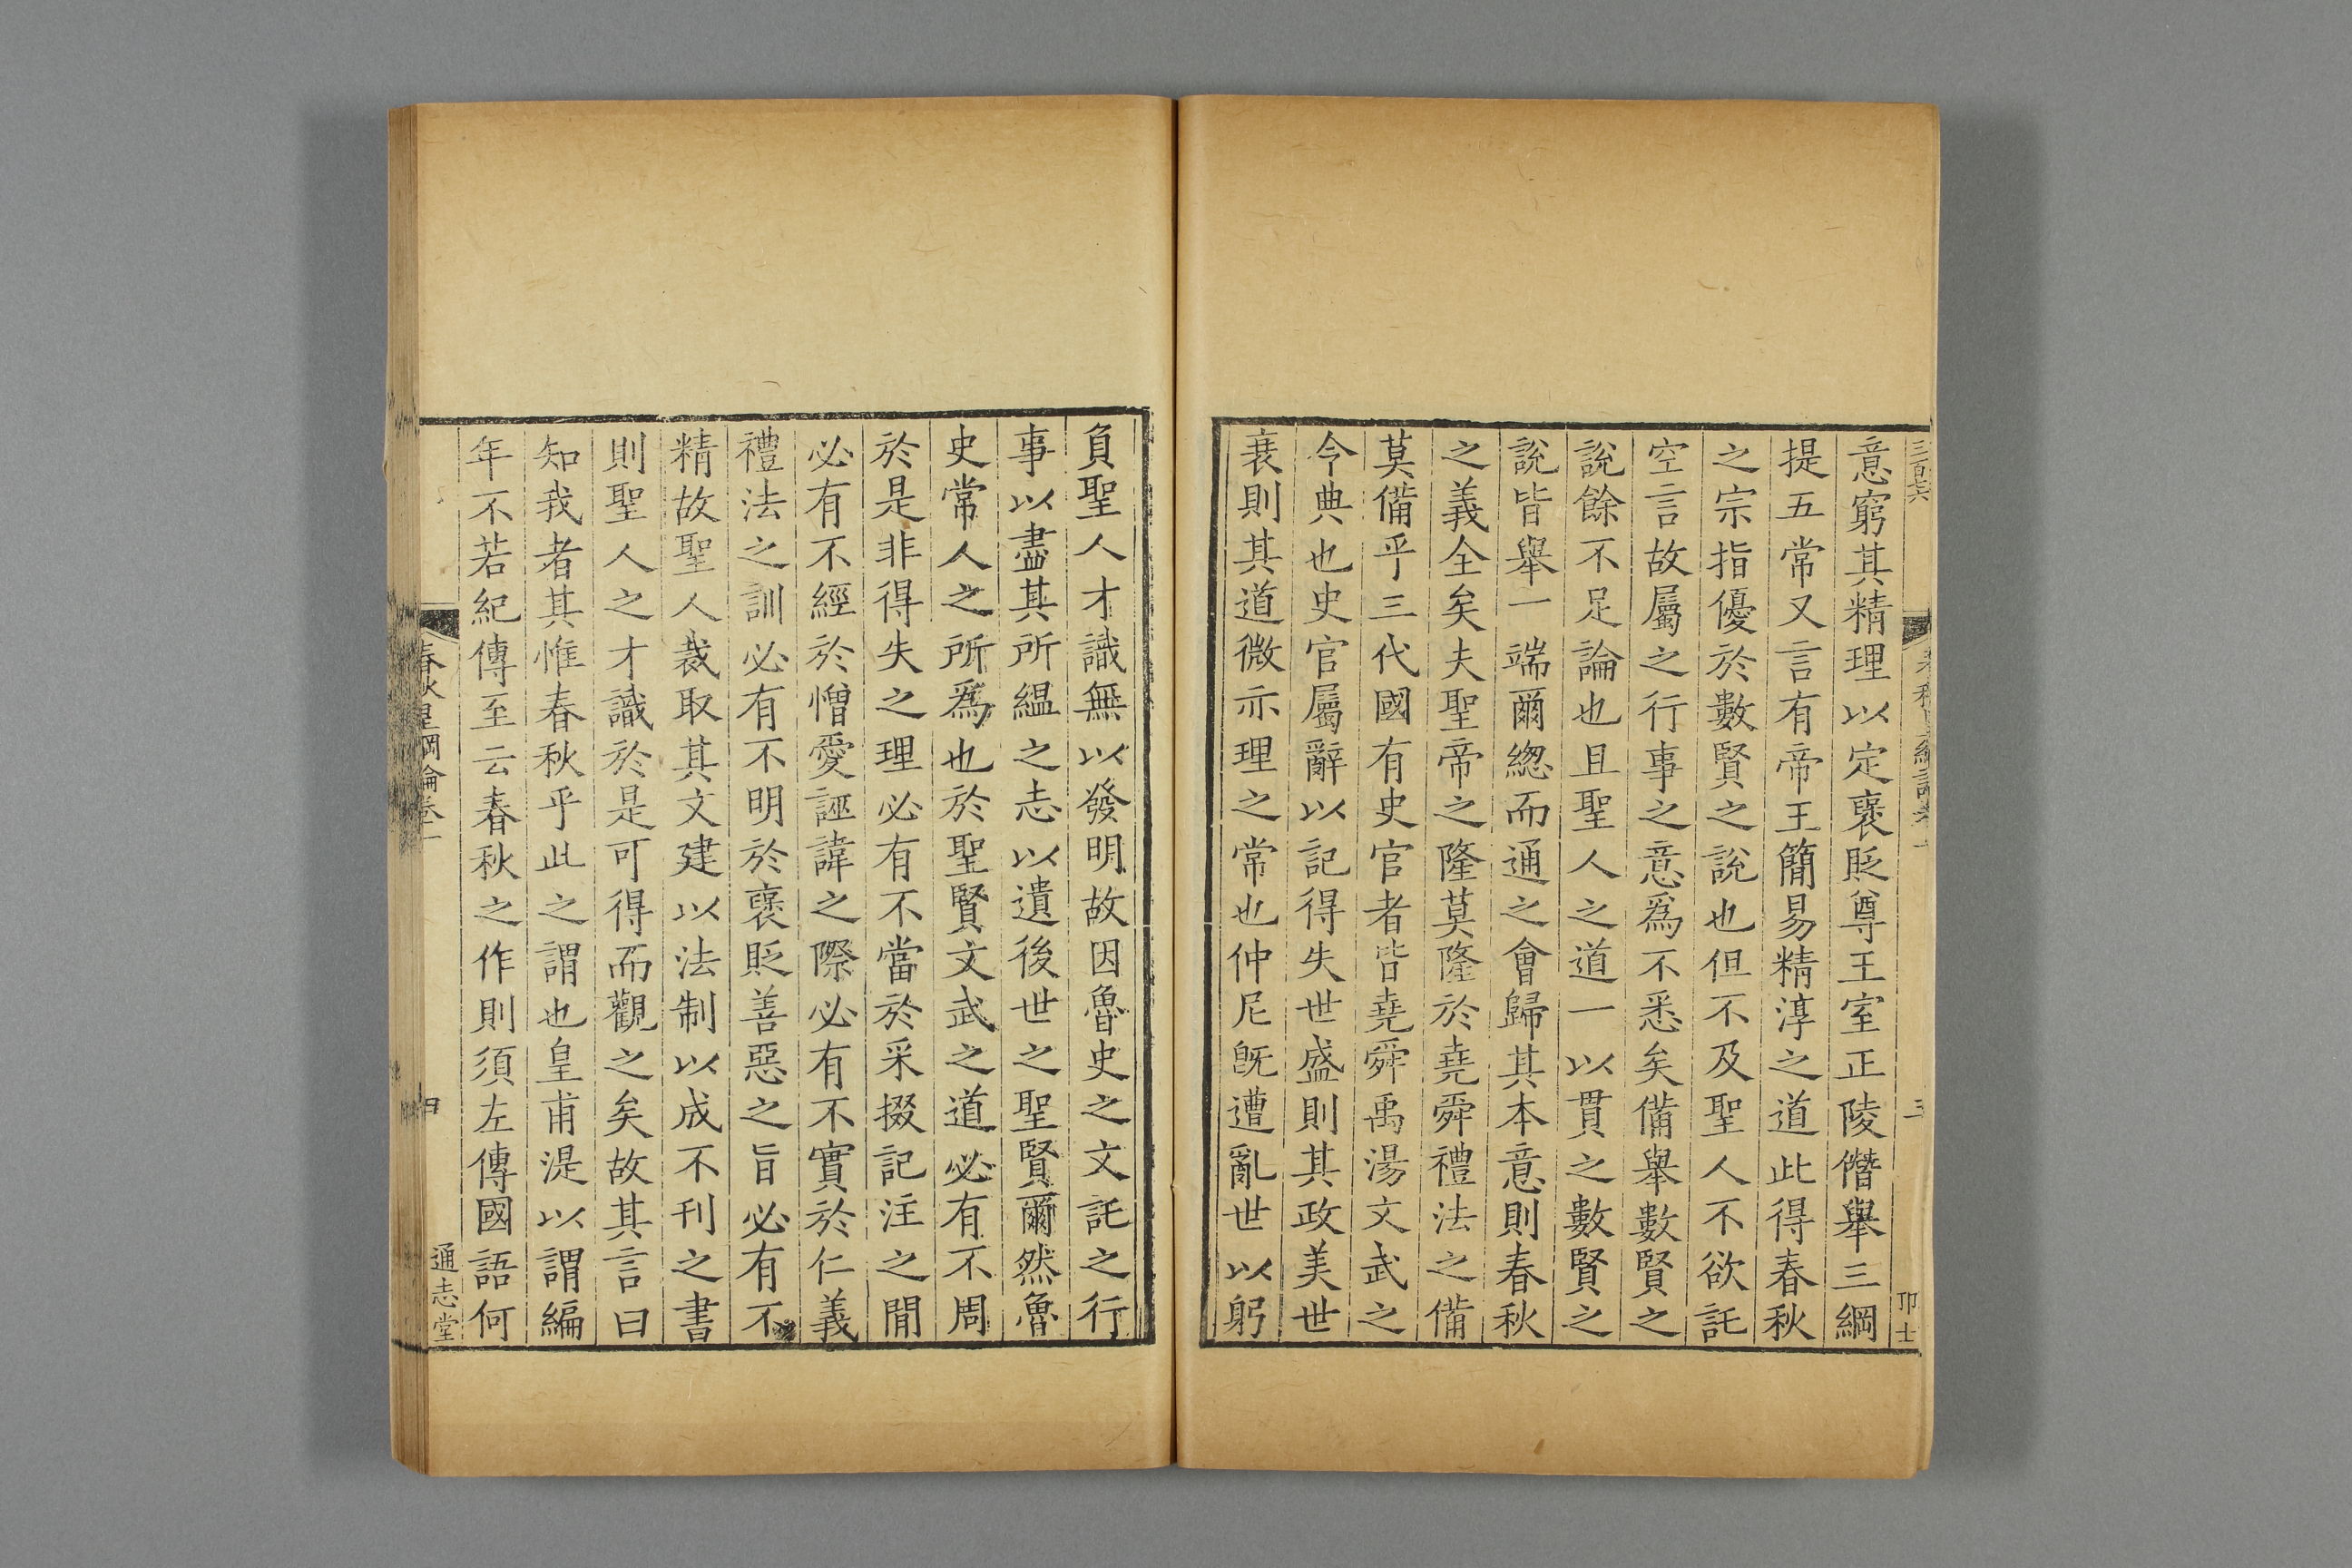 三百六
三
卭士
意窮其精理以定襃貶尊王室正陵僭舉三綱
提五常又言有帝王簡易精淳之道此得春秋
之宗指優於數賢之說也但不及聖人不欲託
空言故屬之行事之意爲不悉矣備舉數賢之
說餘不足論也且聖人之道一以貫之數賢之
說皆舉一端爾緫而通之會歸其本意則春秋
之義全矣夫聖帝之隆莫隆於堯舜禮法之備
莫備乎三代國有史官者皆堯舜禹湯文武之
今典也史官屬辭以記得失世盛則其政美世
衰則其道微示理之常也仲尼旣遭亂世以躬
負聖人才識無以發明故因魯史之文託之行
事以盡其所縕之志以遺後世之聖賢爾然魯
史常人之所爲也於聖賢文武之道必有不周
於是非得失之理必有不當於采掇記注之閒
必有不經於憎愛誣諱之際必有不實於仁義
禮法之訓必有不明於襃貶善惡之旨必有不
精故聖人裁取其文建以法制以成不刊之書
則聖人之才識於是可得而觀之矣故其言曰
知我者其惟春秋乎此之謂也皇甫湜以謂編
年不若紀傳至云春秋之作則須左傳國語何
春秋皇綱論卷一
通志堂